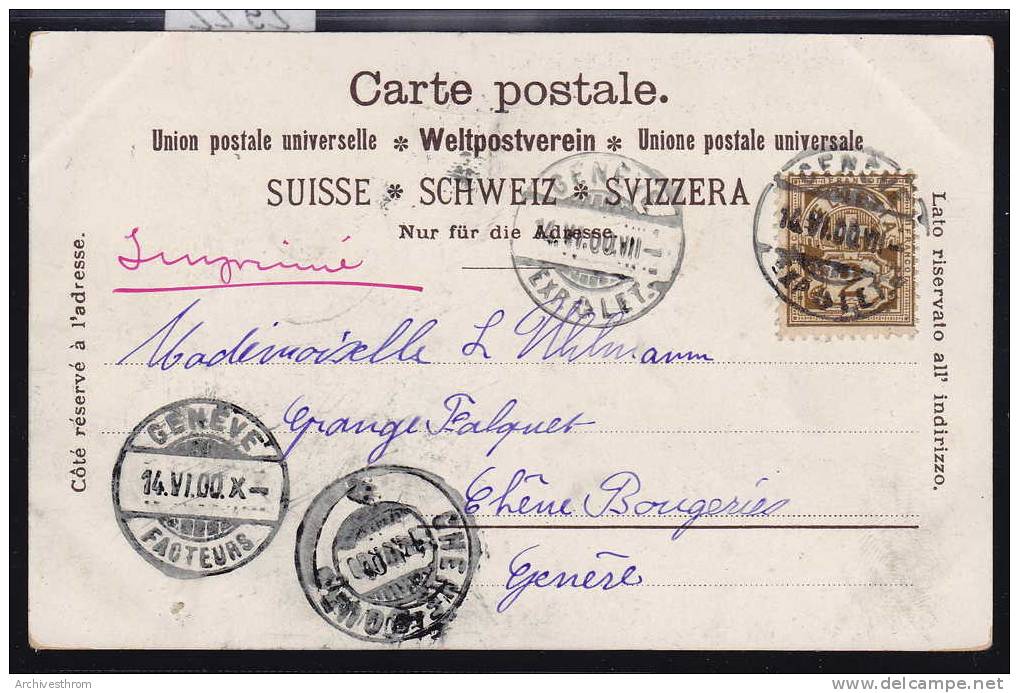 Carte postale.
Union postale universelle * Weltpostverein * Unione postale universale
SUISSE * SCHWEIZ * SVIZZERA
Nur für die Adresse.
Côté réservé à l'adresse.
Lato riservato all' indirizzo.
Imprimé
GENÈVE
14.VI.00.VII
EXP. LET.
GENÈVE
14.VI.00.VII
EXP. LET.
FRANCO
Mademoiselle L Uhlmann
Grange Falquet
Chêne Bougeries
Genève
GENÈVE
14.VI.00.X
FACTEURS
Archivesthrom
delcampe.net